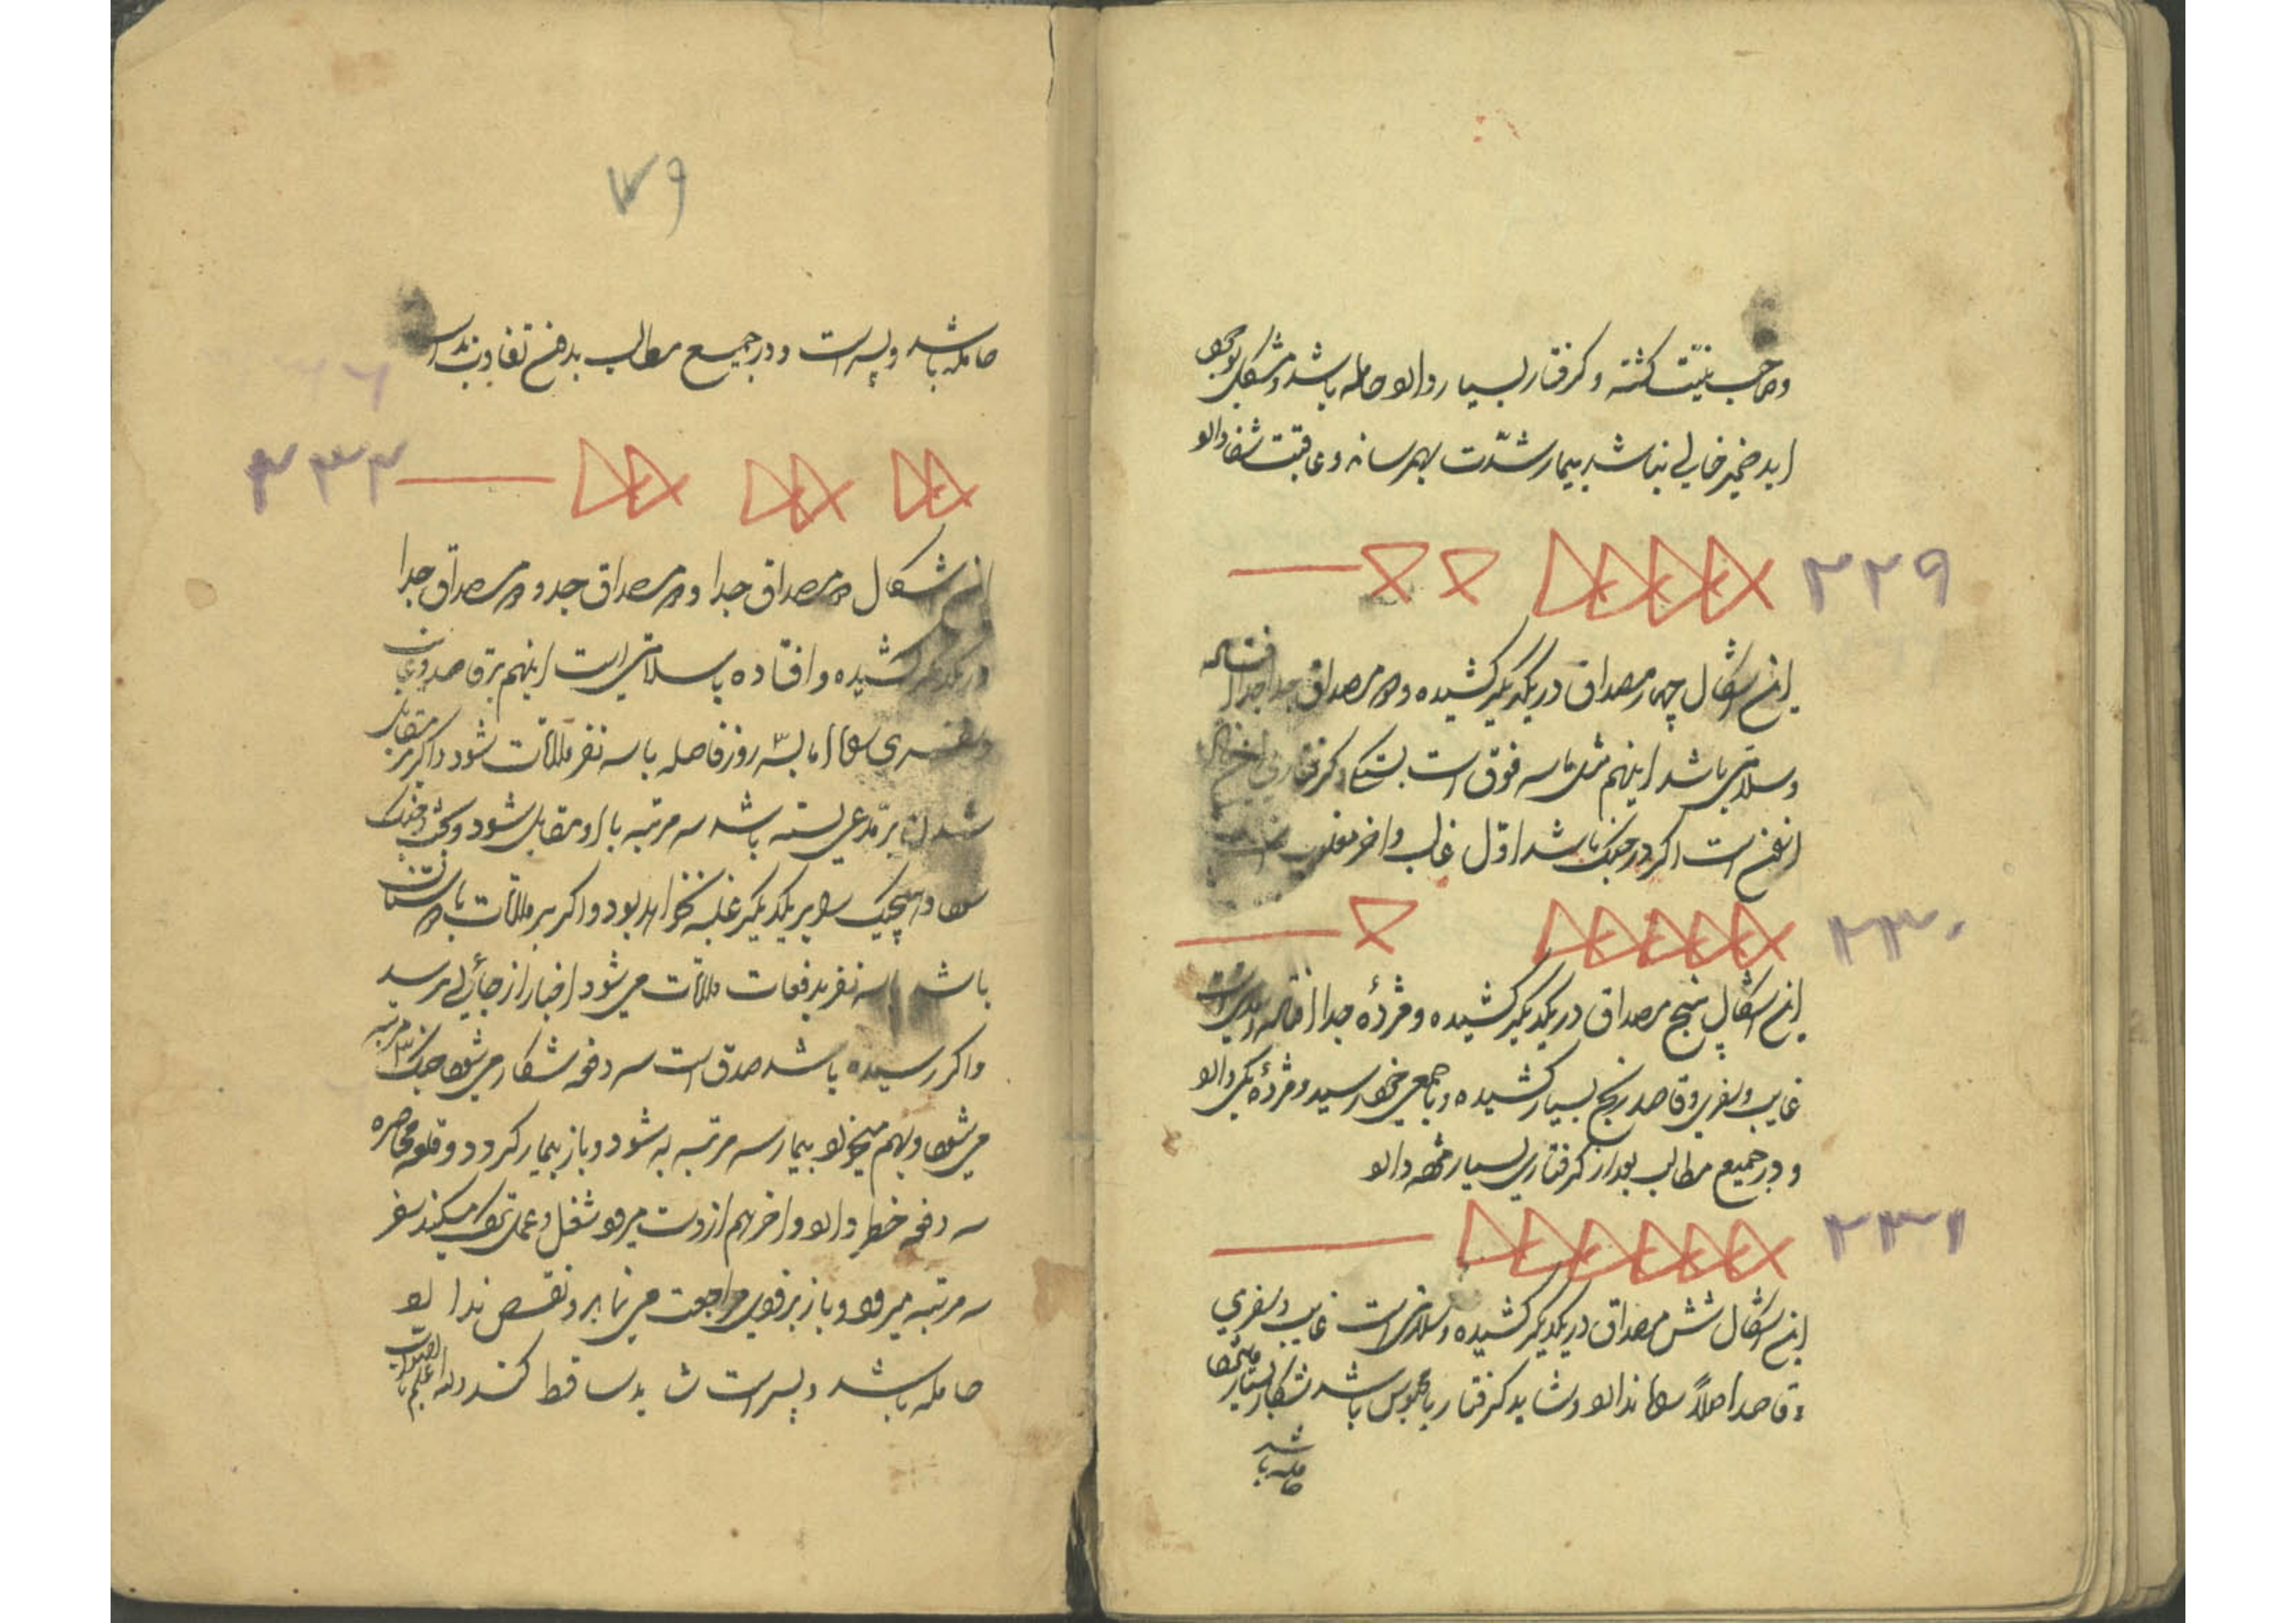 وصاحب نیّت کشته وکرفتار بسیار دارد حامله باشد ومشکل بوجود
اید ضمیر خالی نباشد بیمار شدّت بهمرساند وعاقبت شفا دارد
۲۲۹
این اشکال چهار مصداق در یکدیکر کشیده و دو مصداق جدا جدا افتاده
وسلامتی باشد اینهم مثل ماسه فوق است بستکی وکرفتاری
است اکر در جنک باشد اوّل غالب واخر مغلوب
۲۳۰
این اشکال پنج مصداق در یکدیکر کشیده ومژدهٔ جدا افتاده
غایب وسفری وقاصد رنج بسیار کشیده وبا جمعی خواهد رسید ومژدهٔ یکی دارد
ودر جمیع مطالب بعد از کرفتاری بسیار مژده دارد
۲۳۱
این اشکال شش مصداق در یکدیکر کشیده وسلامتی است غایب وسفری
وقاصد اصلاً ندارد وشاید کرفتار یا محبوس باشد شکار بسیار میشود
حامله باشد
۱۷۹
حامله باشد وپسر است ودر جمیع مطالب بد فتح تفاوت ندارد
۲۳۲
این اشکال دو مصداق جدا ودو مصداق جدا ودو مصداق جدا
در یکدیکر کشیده وافتاده باسلامتی است اینهم بر قاصد وغایب
وسفری اما بسه روز فاصله با سه نفر ملاقات شود واکر بر مقابل
شدن بر مدّعی بسته باشد سه مرتبه با او مقابل شود وبحث وجنک
شود وهیچیک را بر یکدیکر غلبه نخواهد بود واکر بر ملاقات با دوستان
باشد با سه نفر بدفعات ملاقات می شود اخبار از جائی نرسید
واکر رسیده باشد صدق است سه دفعه شکار می شود جنک ۳ مرتبه
می شود وبهم میخورد بیمار سه مرتبه به شود وباز بیمار کردد وقلعه محاصره
سه دفعه خطر دارد واخر هم از دست میرود شغل وعمل ترک میکند سفر
سه مرتبه میرود وباز بزودی مراجعت می نماید ونقص ندارد
حامله باشد وپسر است شاید ساقط کند والله اعلم بالصواب